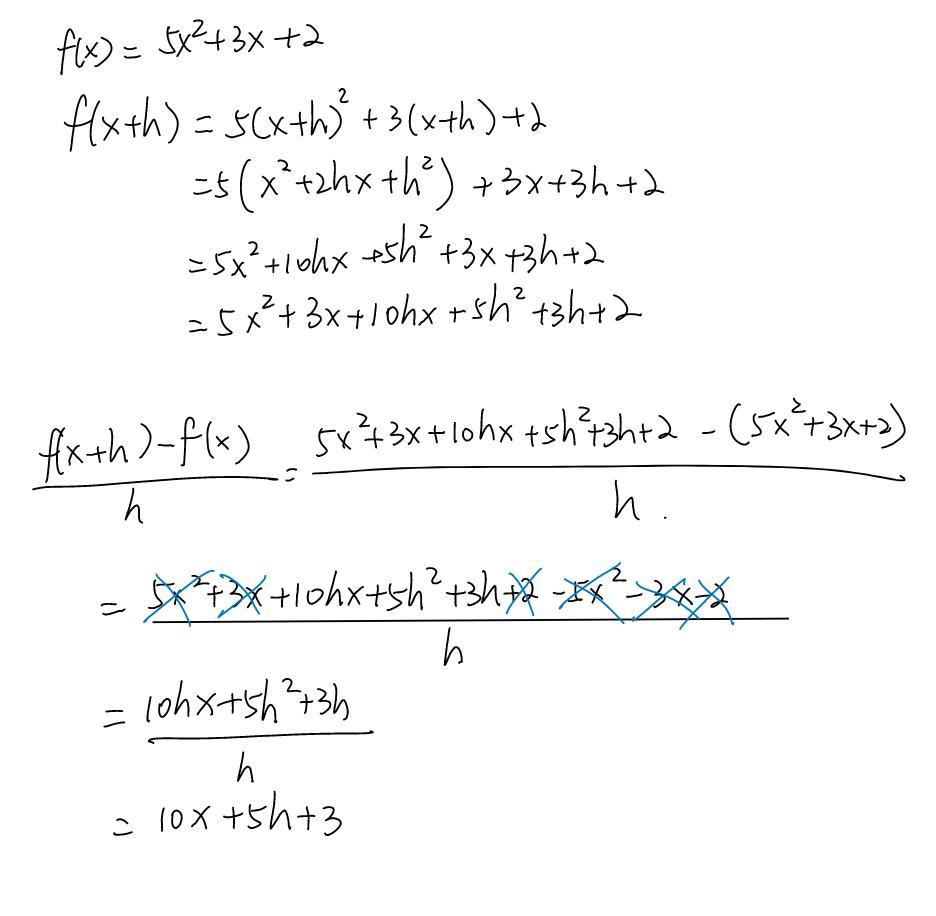 f(x) = 5x²+3x+2
f(x+h) = 5(x+h)² + 3(x+h)+2
=5(x²+2hx+h²) + 3x+3h+2
=5x²+10hx +5h² +3x+3h+2
=5x²+3x+10hx+5h²+3h+2
f(x+h)-f(x) / h = 5x²+3x+10hx+5h²+3h+2 - (5x²+3x+2) / h.
= 5x²+3x+10hx+5h²+3h+2-5x²-3x-2 / h
= 10hx+5h²+3h / h
= 10x+5h+3